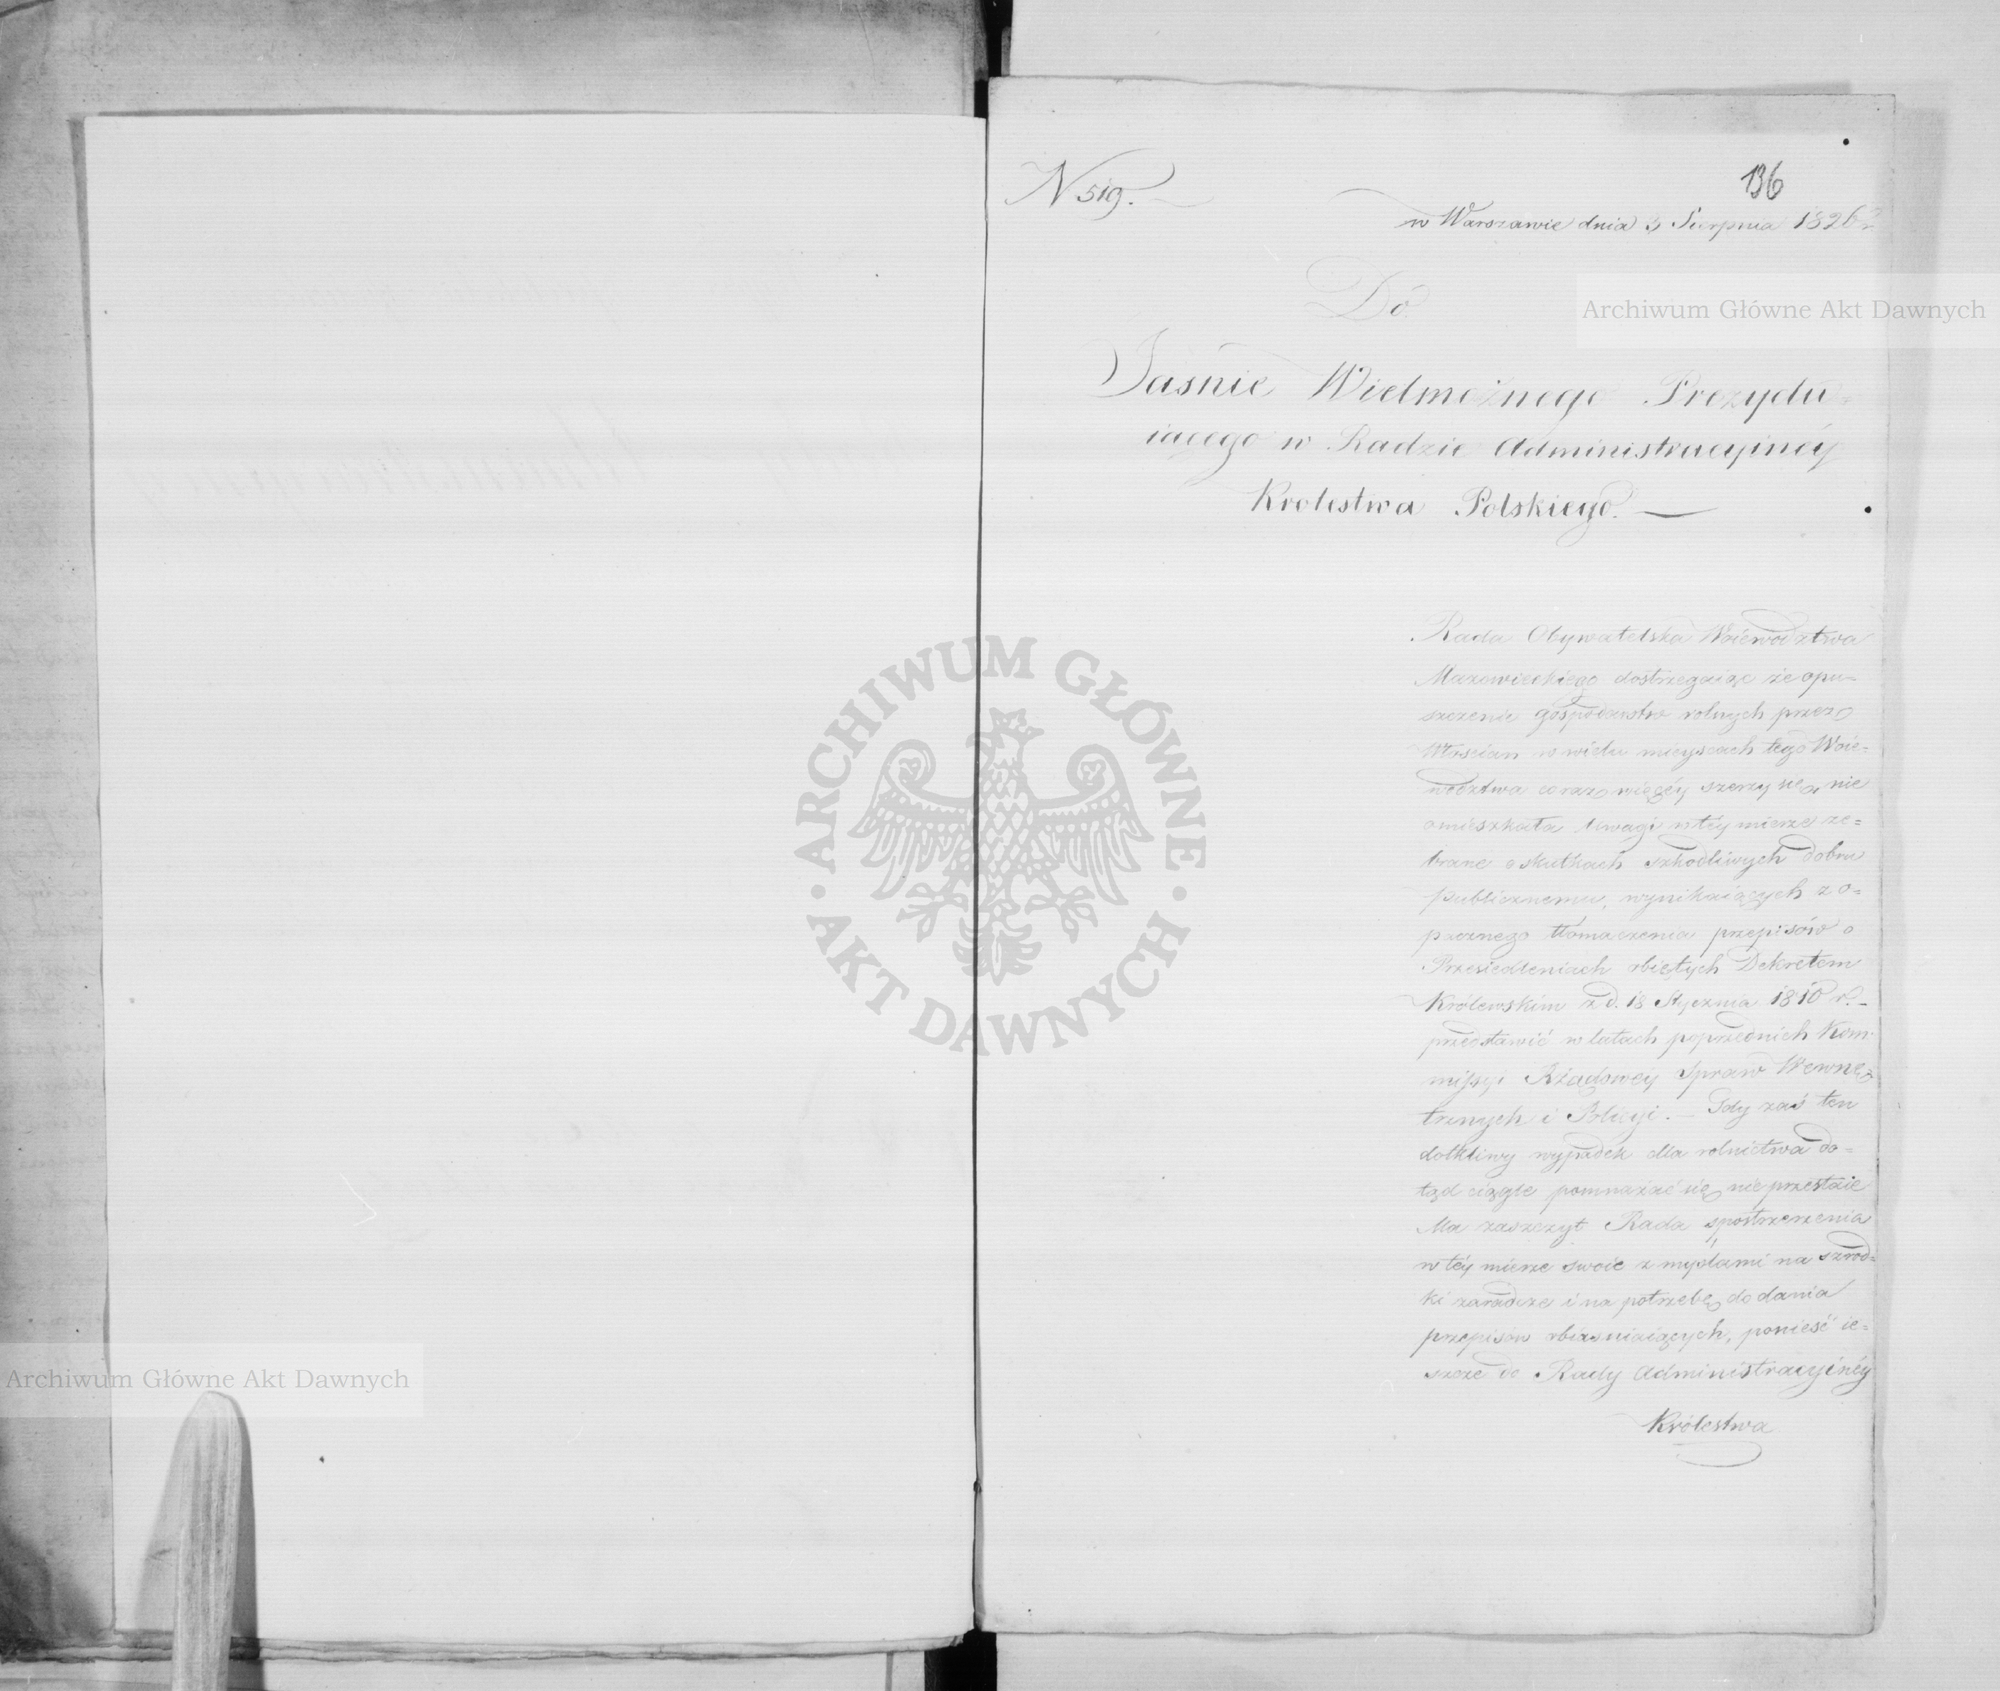 N 519.
136
w Warszawie dnia 3 Sierpnia 1826 r
Do
Jaśnie Wielmożnego Prezydu=
iącego w Radzie Administracyinéy
Krolestwa Polskiego. —
Rada Obywatelska Woiewodztwa
Mazowieckiego dostrzegaiąc że opu=
szczenie gospodarstw rolnych przez
Włościan w wielu mieyscach tego Woie=
wodztwa coraz więcéy szerzy się, nie
omieszkała Uwagi w téy mierze ze=
brane o skutkach szkodliwych dobru
publicznemu, wynikaiących z o=
pacznego tłomaczenia przepisów o
Przesiedleniach obiętych Dekretem
Królewskim z d. 18 Stycznia 1810 r. –
przedstawić w latach poprzednich Kom=
missyi Rządowéy Spraw Wewnę=
trznych i Policyi. — Gdy zaś ten
dotkliwy wypadek dla rolnictwa do=
tąd ciągle pomnażać się nie przestaie
Ma zaszczyt Rada spostrzerzenia
w téy mierze swoie z myślami na szrod=
ki zaradcze i na potrzebę dodania
przepisów obiaśniaiących, ponieść ie=
szcze do Rady Administracyinéy
Królestwa
Archiwum Główne Akt Dawnych
Archiwum Główne Akt Dawnych
ARCHIWUM GŁÓWNE
AKT DAWNYCH